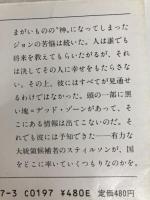 まがいものの“神”になってしまった
ジョンの苦悩は続いた。人は誰でも
将来を教えてもらいたがるが、それ
は決してその人に幸せをもたらさな
い。その上、彼にはすべてが見通せ
るわけではなかった。頭の一部に黒
い塊=デッド・ゾーンがあって、そ
こにある情報は出てこないのだ。そ
れでも彼には予知できた──有力な
大統領候補者のスティルソンが、国
をどこに率いていくつもりなのかを。
7-3 C0197 ¥480E 定価480円